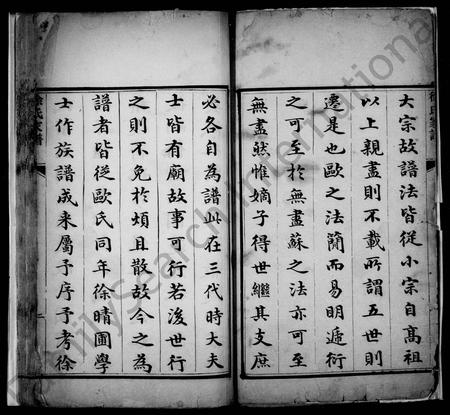 大宗故譜法皆從小宗自高祖
以上親盡則不載所謂五世則
遷是也歐之法簡而易明遞衍
之可至於無盡蘇之法亦可至
無盡然惟嫡子得世繼其支庶
必各自為譜此在三代時大夫
士皆有廟故事可行若後世行
之則不免於煩且散故今之為
譜者皆從歐氏同年徐晴圃學
士作族譜成来屬予序予考徐
徐氏家譜
FamilySearch International